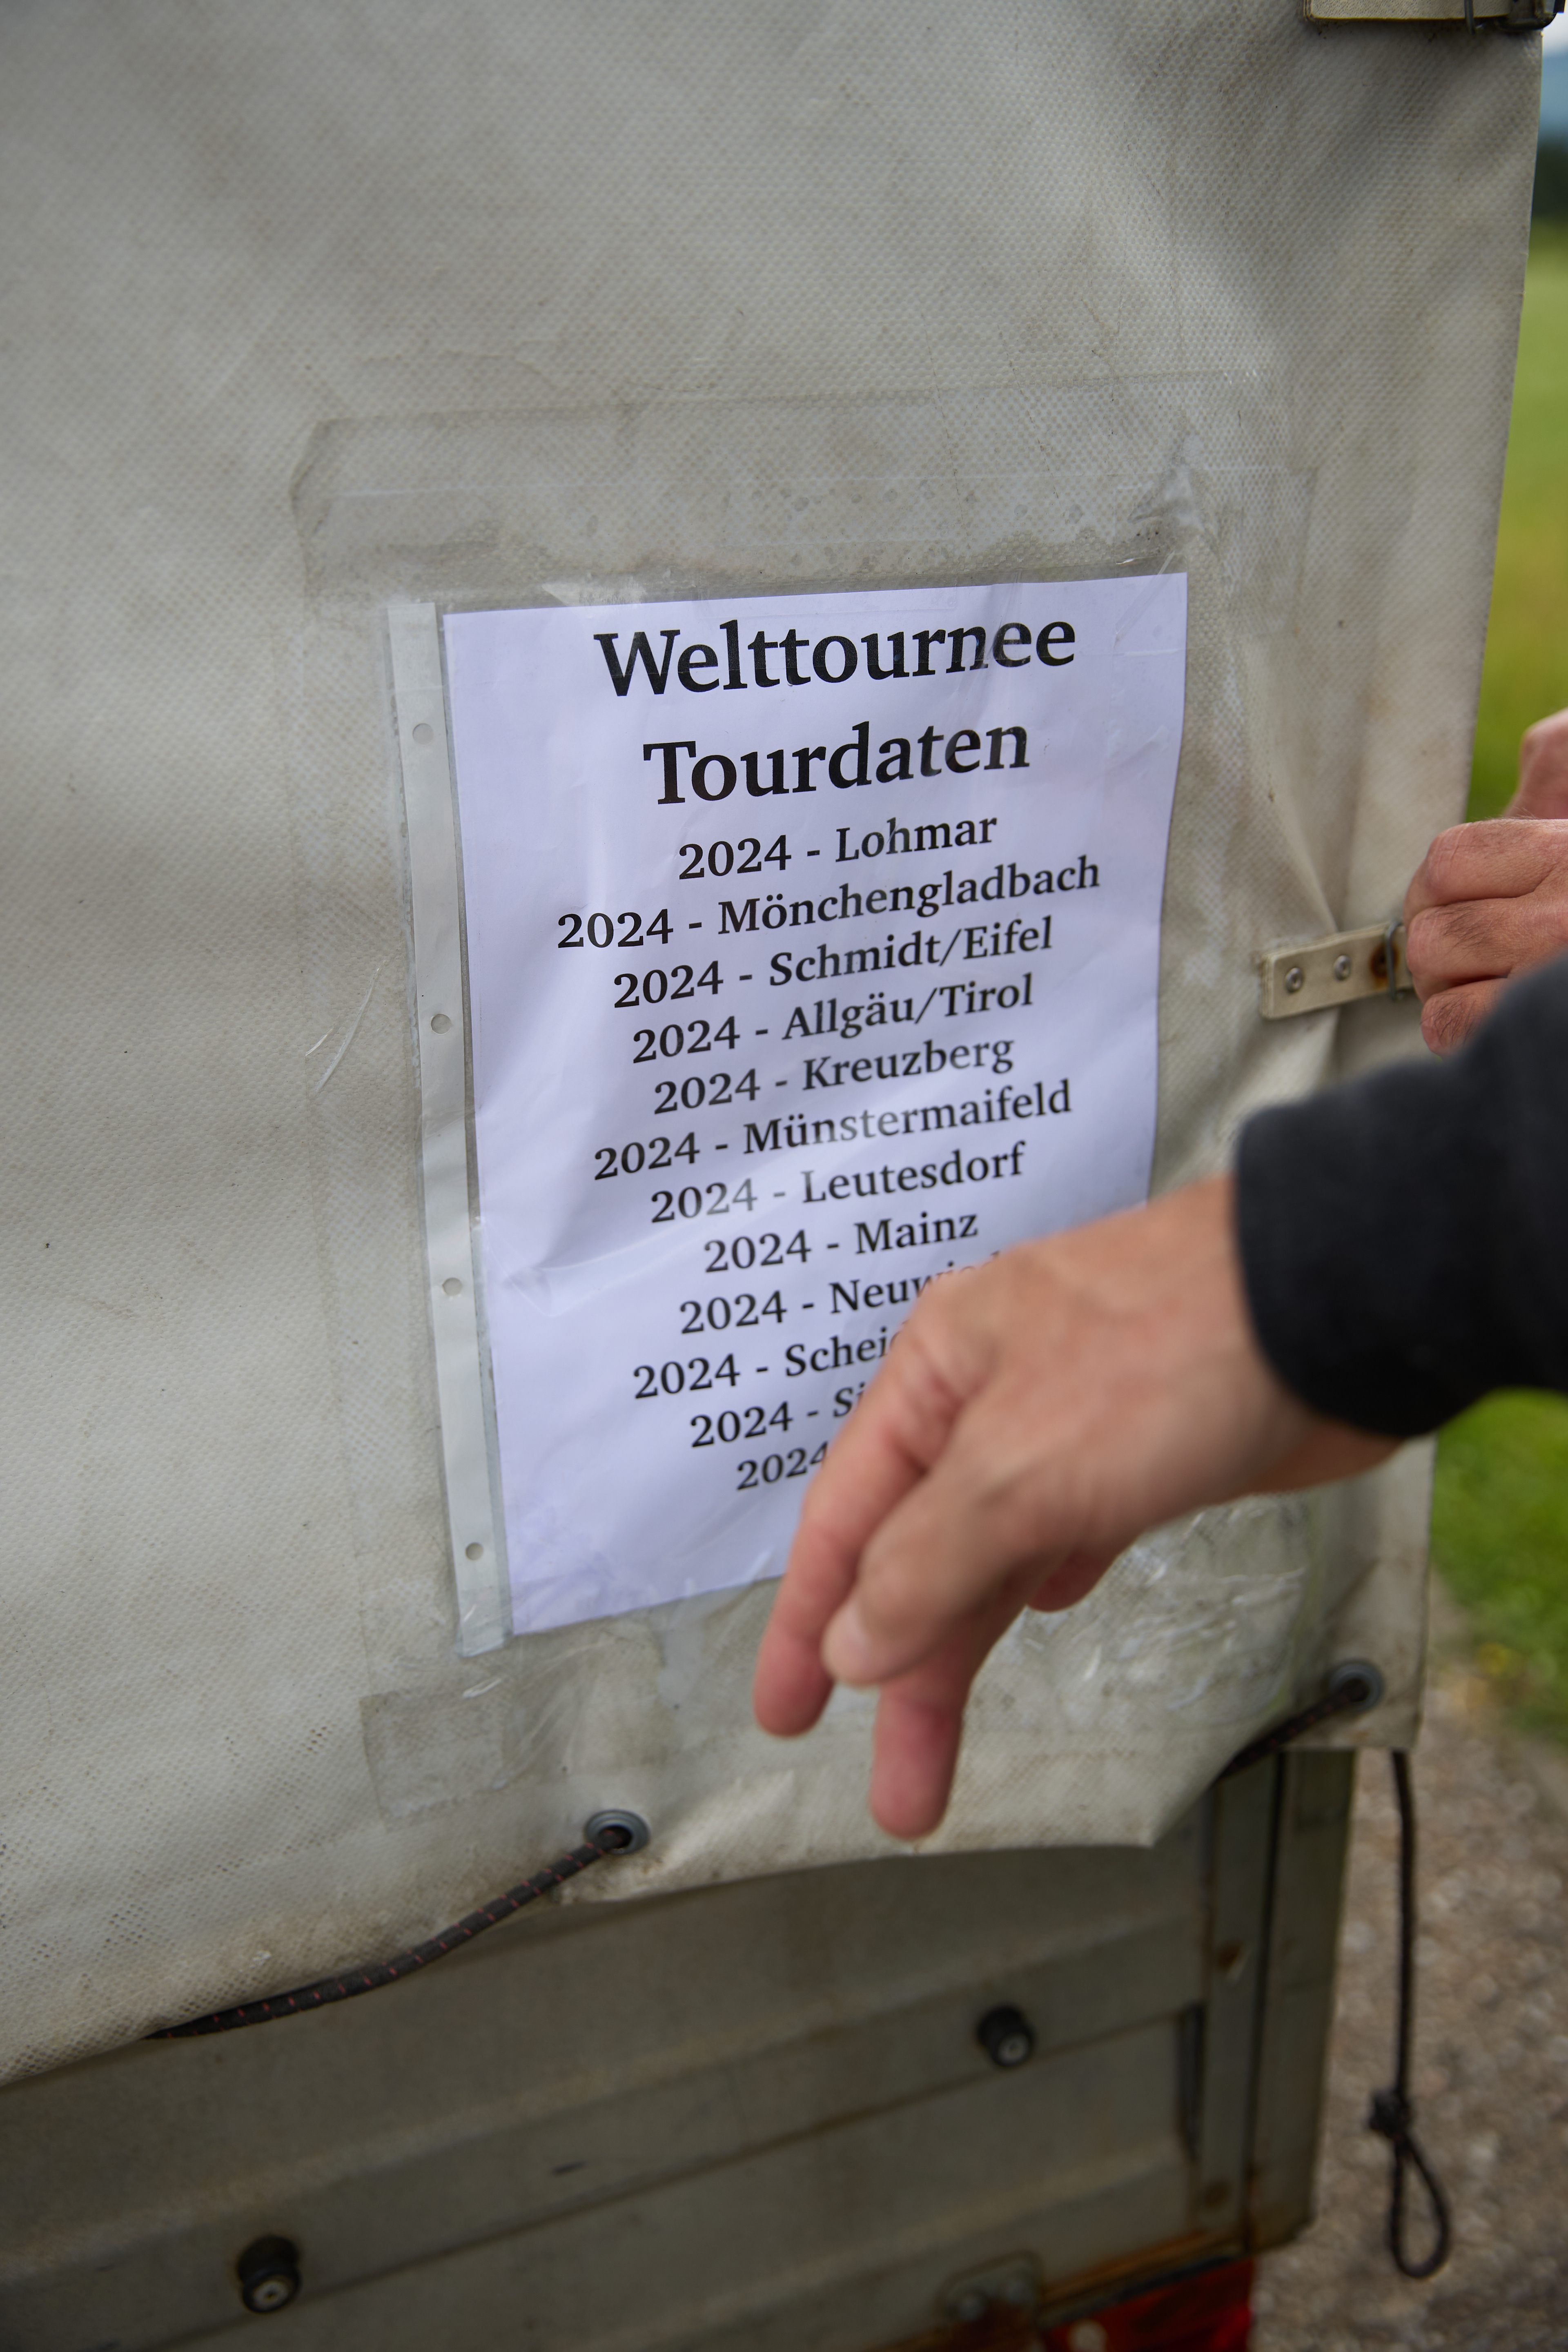 Welttournee
Tourdaten
2024 - Lohmar
2024 - Mönchengladbach
2024 - Schmidt/Eifel
2024 - Allgäu/Tirol
2024 - Kreuzberg
2024 - Münstermaifeld
2024 - Leutesdorf
2024 - Mainz
2024 -
2024 -
2024 -
2024